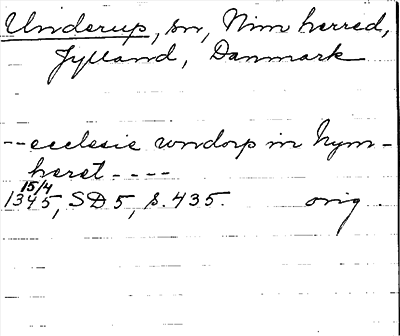 Underup, sn, Nim herred,
Jylland, Danmark
-- ecclesie undorp in Nym-
heret ----
15/4
1345, SD 5, s. 435. orig.